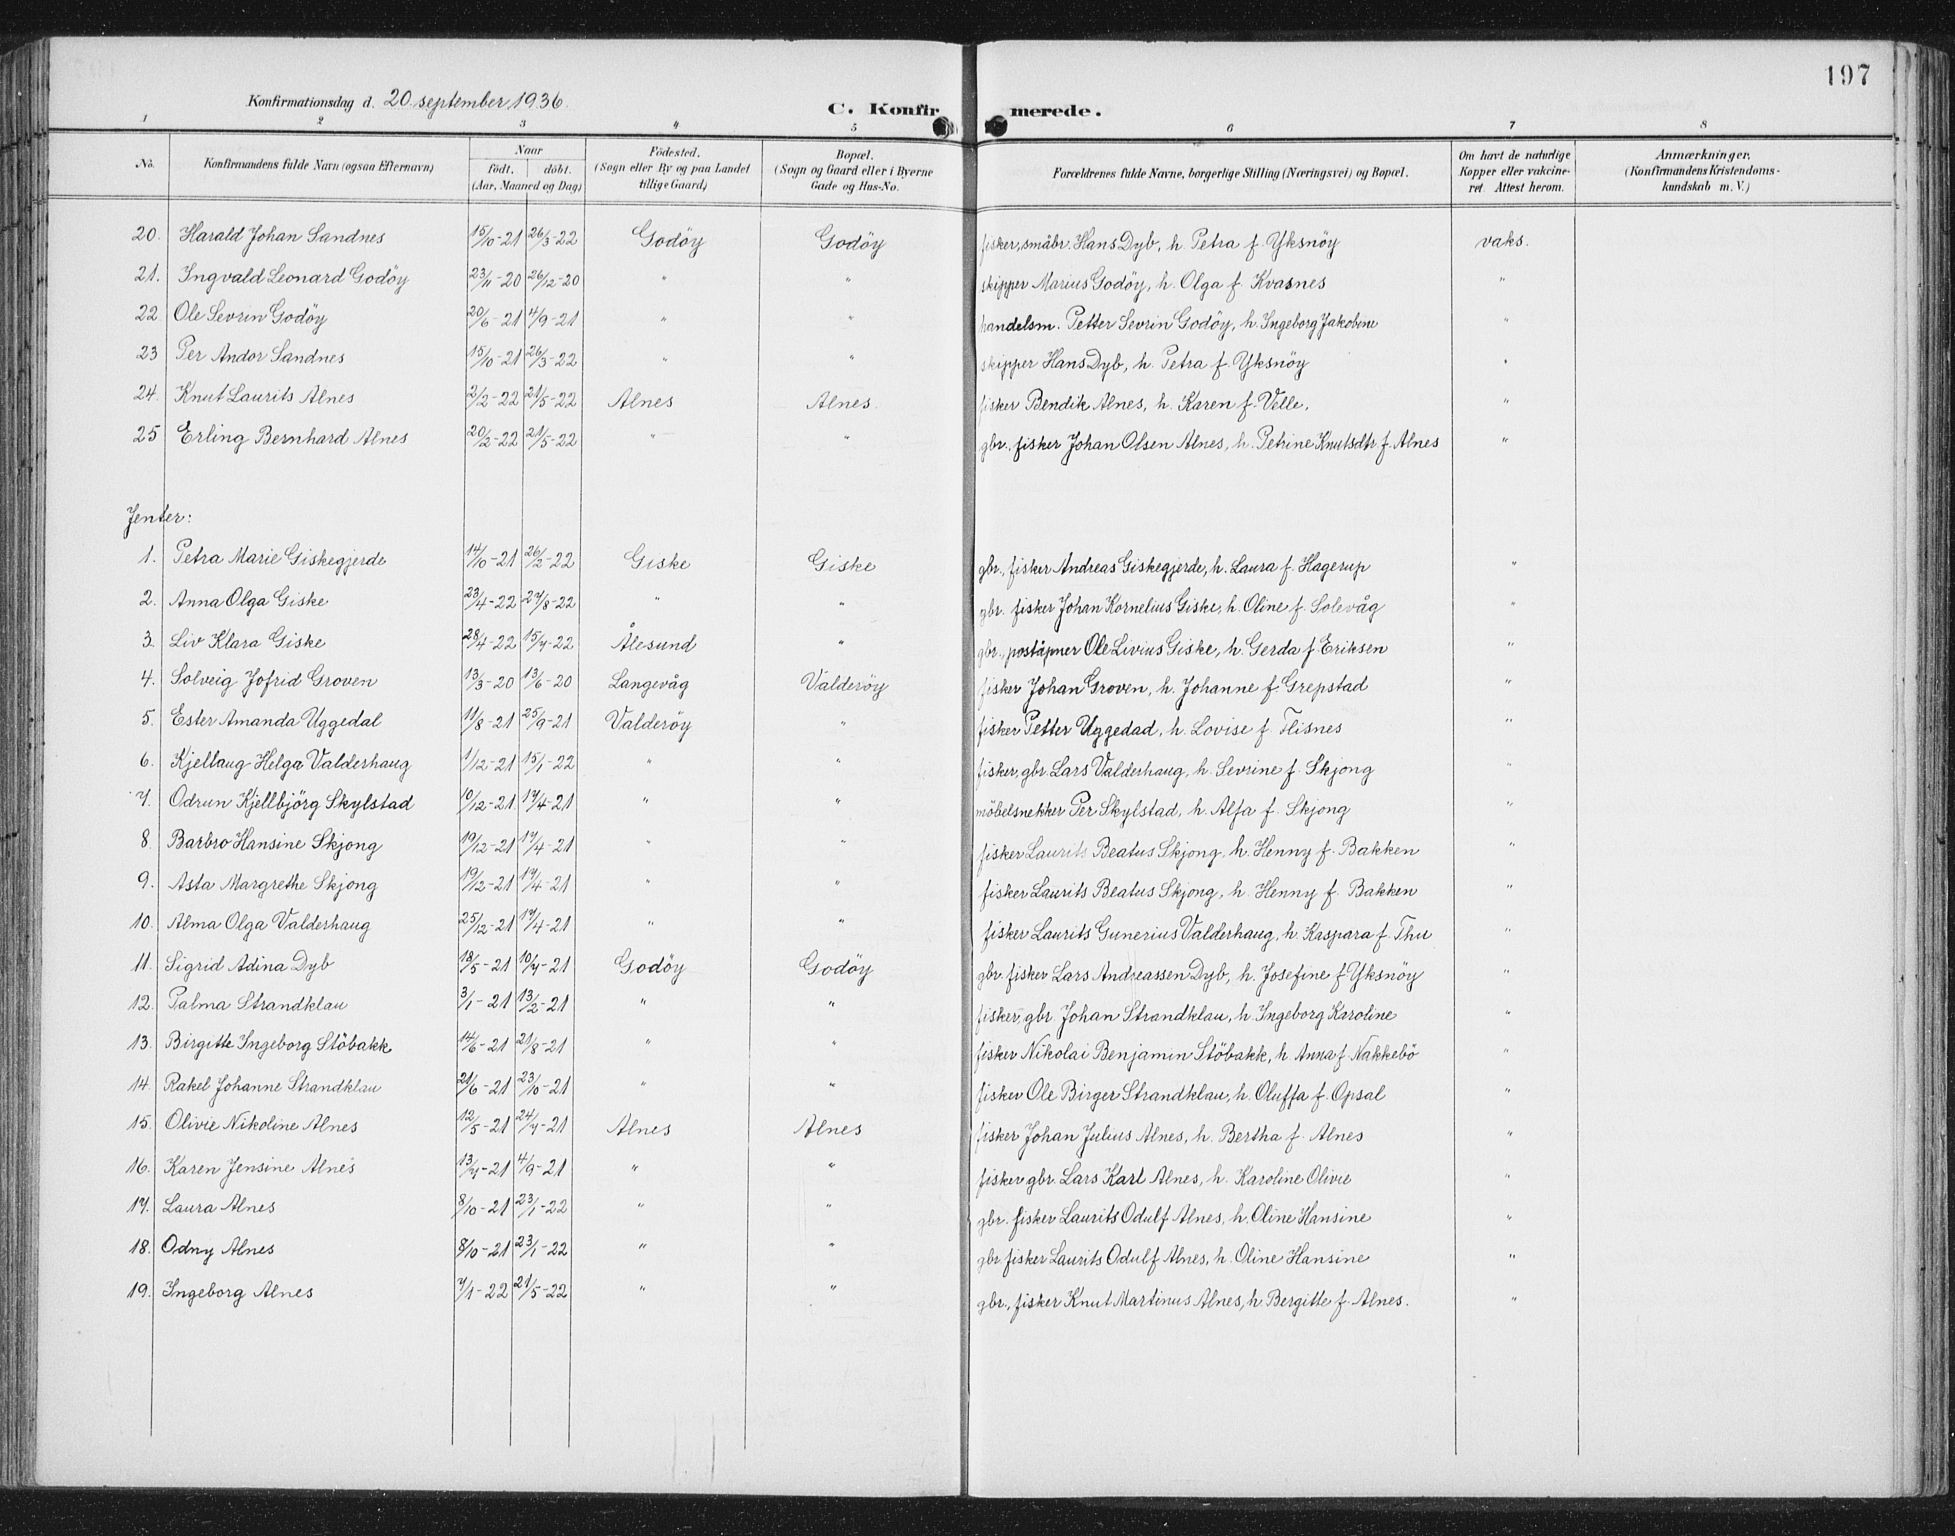 197
Konfirmationsdag d. 20. september 1936.
C. Konfirmerede.
1 2 3 4 5 6 7 8
No. Konfirmandens fulde Navn (ogsaa Efternavn) Naar født. døbt. (Aar, Maaned og Dag) Fødested. (Sogn eller By og paa Landet tillige Gaard) Bopæl. (Sogn og Gaard eller i Byerne Gade og Hus-No. Forældrenes fulde Navne, borgerlige Stilling (Næringsvei) og Bopæl. Om havt de naturlige Kopper eller vakcineret. Attest herom. Anmærkninger. (Konfirmandens Kristendomskundskab m. V.)
20. Harald Johan Sandnes 15/10-21 26/3-22 Godöy Godöy fisker, småbr. Hans Dyb, h. Petra f. Yksnöy vaks.
21. Ingvald Leonard Godöy 23/11-20 26/12-20 " " skipper Marius Godöy, h. Olga f. Kvasnes "
22 Ole Sevrin Godöy 20/6-21 4/9-21 " " handelsm. Petter Sevrin Godöy, h. Ingeborg Jakobine "
23 Per Andor Sandnes 15/10-21 26/3-22 " " skipper Hans Dyb, h. Petra f. Yksnöy "
24. Knut Laurits Alnes 2/2-22 21/5-22 Alnes Alnes. fisker Bendik Alnes, h. Karen f. Velle. "
25 Erling Bernhard Alnes 20/2-22 21/5-22 " " gbr., fisker Johan Olsen Alnes, h. Petrine Knutsdtr f. Alnes "
Jenter:
1. Petra Marie Giskegjerde 14/10-21 26/2-22 Giske Giske gbr., fisker Andreas Giskegjerde, h. Laura f. Hagerup "
2. Anna Olga Giske 23/4-22 27/8-22 " " gbr. fisker Johan Kornelius Giske, h. Oline f. Solevåg "
3. Liv Klara Giske 28/4-22 15/7-22 Ålesund " gbr., poståpner Ole Livius Giske, h. Gerda f. Eriksen "
4. Solveig Jofrid Groven 13/3-20 13/6-20 Langevåg Valderöy fisker Johan Groven, h. Johanne f. Grepstad "
5. Ester Amanda Uggedal 11/8-21 25/9-21 Valderöy " fisker Petter Uggedad, h. Lovise f. Flisnes "
6. Kjellaug Helga Valderhaug 1/12-21 15/1-22 " " fisker, gbr. Lars Valderhaug, h. Sevrine f. Skjong "
7. Odrun Kjellbjörg Skylstad 10/12-21 17/4-21 " " möbelsnekker Per Skylstad, h. Alfa f. Skjong "
8. Barbro Hansine Skjong 19/12-21 17/4-21 " " fisker Laurits Beatus Skjong, h. Henny f. Bakken "
9. Asta Margrethe Skjong 19/12-21 17/4-21 " " fisker Laurits Beatus Skjong, h. Henny f. Bakken "
10. Alma Olga Valderhaug 25/12-21 17/4-21 " " fisker Laurits Gunerius Valderhaug, h. Kaspara f. Thu "
11. Sigrid Adina Dyb 18/5-21 10/7-21 Godöy Godöy gbr. fisker Lars Andreassen Dyb, h. Josefine f Yksnöy "
12. Palma Strandklau 3/1-21 13/2-21 " " fisker, gbr. Johan Strandklau, h. Ingeborg Karoline "
13. Birgitte Ingeborg Stöbakk 14/6-21 21/8-21 " " fisker Nikolai Benjamin Stöbakk, h. Anna f. Nakkebö "
14. Rakel Johanne Strandklau 21/6-21 23/10-21 " " fisker Ole Birger Strandklau, h. Oluffa f. Opsal "
15. Olivie Nikoline Alnes 12/5-21 24/7-21 Alnes Alnes fisker Johan Julius Alnes, h. Bertha f. Alnes "
16. Karen Jensine Alnes 13/7-21 4/9-21 " " fisker gbr. Lars Karl Alnes, h. Karoline Olivie "
17. Laura Alnes 8/10-21 23/1-22 " " gbr. fisker Laurits Odulf Alnes, h. Oline Hansine "
18. Odny Alnes 8/10-21 23/1-22 " " gbr fisker Laurits Odulf Alnes, h. Oline Hansine "
19. Ingeborg Alnes 7/1-22 21/5-22 " " gbr., fisker Knut Martinus Alnes, h Bergitte f. Alnes. "